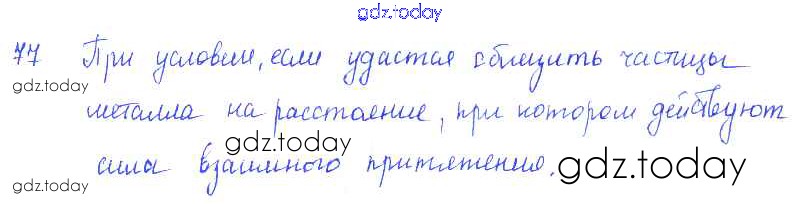 gdz.today
77 При условии, если удастся сблизить частицы
gdz.today
металла на расстояние, при котором действуют
gdz.today
сила взаимного притяжения.
gdz.today
gdz.today